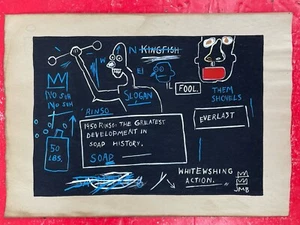 N KINGFISH
W
EI
NO SUH
NO SUH
SLOGAN
IL
FOOL.
THEM
SHOVELS
RINSO
1950 RINSO: THE GREATEST
DEVELOPMENT IN
SOAP HISTORY.
SOAP
EVERLAST
50
LBS.
WHITEWSHING
ACTION.
JMB